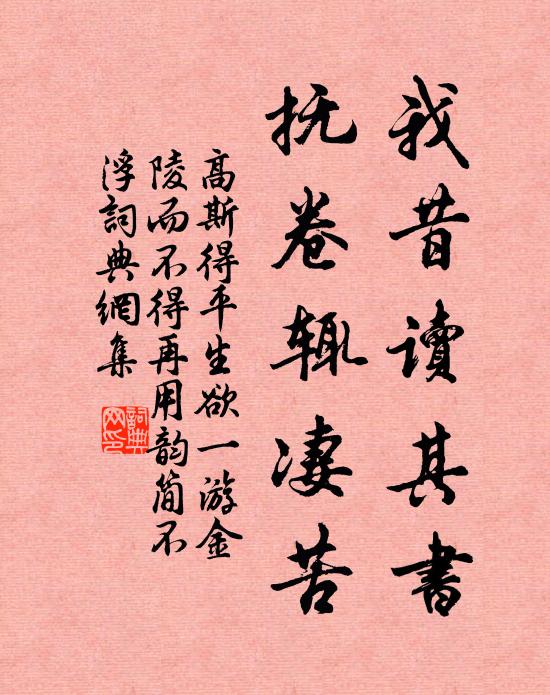 我昔讀其書
抚卷辄凄苦
高斯得平生欲一游金
陵而不得再用韵简不
浮詞典網集
詞典
网印